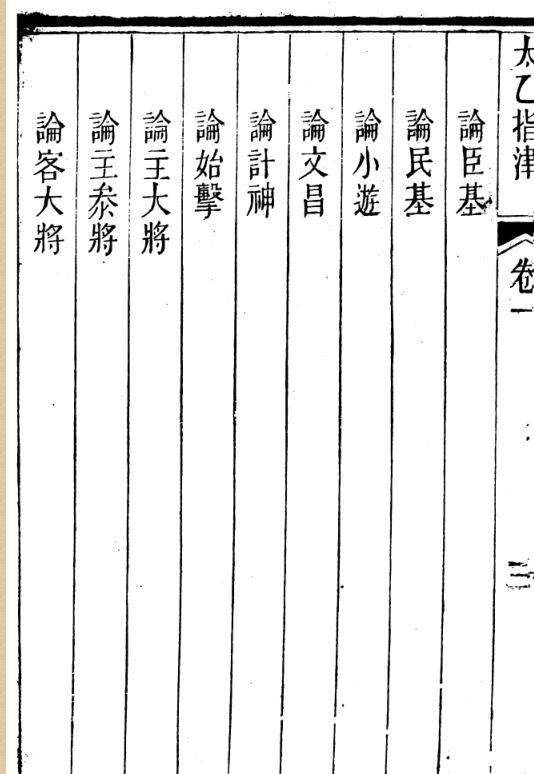 太乙指津
卷一
論臣基
論民基
論小遊
論文昌
論計神
論始擊
論主大將
論主叅將
論客大將